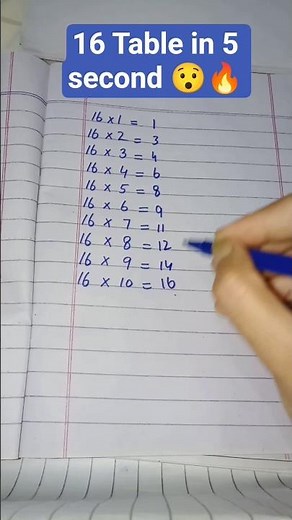 16 Table in 5
second 😯🔥
16 × 1 = 1
16 × 2 = 3
16 × 3 = 4
16 × 4 = 6
16 × 5 = 8
16 × 6 = 9
16 × 7 = 11
16 × 8 = 12
16 × 9 = 14
16 × 10 = 16